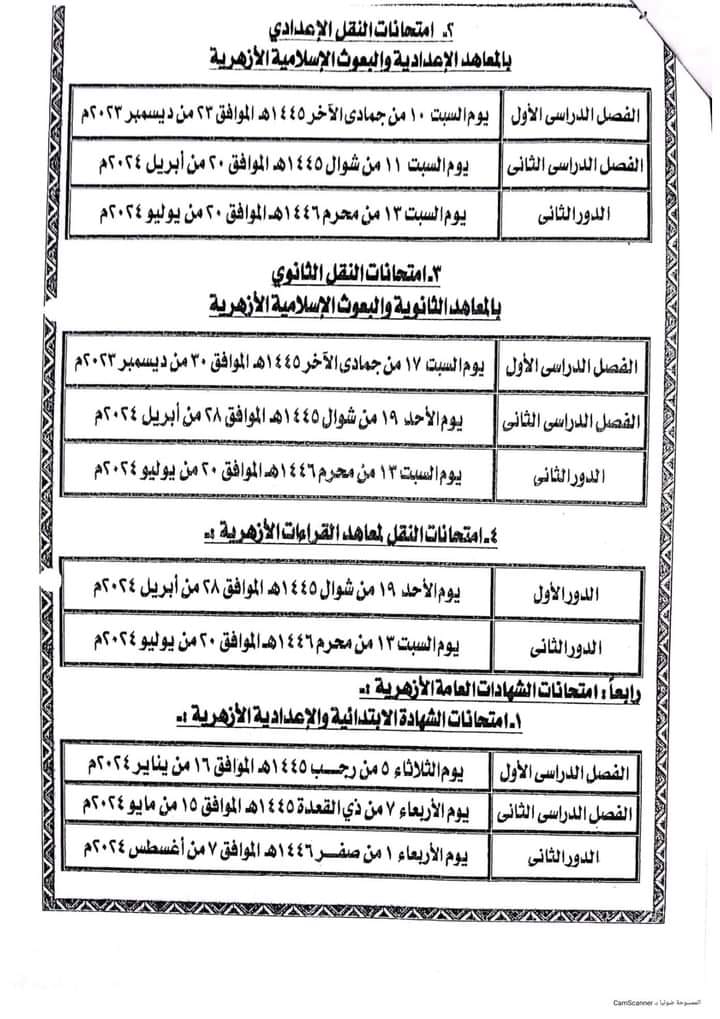 ٢ـ امتحانات النقل الإعدادي
بالمعاهد الإعدادية والبعوث الإسلامية الأزهرية
الفصل الدراسى الأول يوم السبت ١٠ من جمادى الآخر ١٤٤٥هـ الموافق ٢٣ من ديسمبر ٢٠٢٣م
الفصل الدراسى الثانى يوم السبت ١١ من شوال ١٤٤٥هـ الموافق ٢٠ من أبريل ٢٠٢٤م
الدور الثانى يوم السبت ١٣ من محرم ١٤٤٦هـ الموافق ٢٠ من يوليو ٢٠٢٤م
٣ـ امتحانات النقل الثانوي
بالمعاهد الثانوية والبعوث الإسلامية الأزهرية
الفصل الدراسى الأول يوم السبت ١٧ من جمادى الآخر ١٤٤٥هـ الموافق ٣٠ من ديسمبر ٢٠٢٣م
الفصل الدراسى الثانى يوم الأحد ١٩ من شوال ١٤٤٥هـ الموافق ٢٨ من أبريل ٢٠٢٤م
الدور الثانى يوم السبت ١٣ من محرم ١٤٤٦هـ الموافق ٢٠ من يوليو ٢٠٢٤م
٤ـ امتحانات النقل لمعاهد القراءات الأزهرية :ـ
الدور الأول يوم الأحد ١٩ من شوال ١٤٤٥هـ الموافق ٢٨ من أبريل ٢٠٢٤م
الدور الثانى يوم السبت ١٣ من محرم ١٤٤٦هـ الموافق ٢٠ من يوليو ٢٠٢٤م
رابعاً : امتحانات الشهادات العامة الأزهرية :ـ
١ـ امتحانات الشهادة الابتدائية والإعدادية الأزهرية :ـ
الفصل الدراسى الأول يوم الثلاثاء ٥ من رجـــب ١٤٤٥هـ الموافق ١٦ من يناير ٢٠٢٤م
الفصل الدراسى الثانى يوم الأربعاء ٧ من ذي القعدة ١٤٤٥هـ الموافق ١٥ من مايو ٢٠٢٤م
الدور الثانى يوم الأربعاء ١ من صفـــر ١٤٤٦هـ الموافق ٧ من أغسطس ٢٠٢٤م
الممسوحة ضوئيا بـ CamScanner